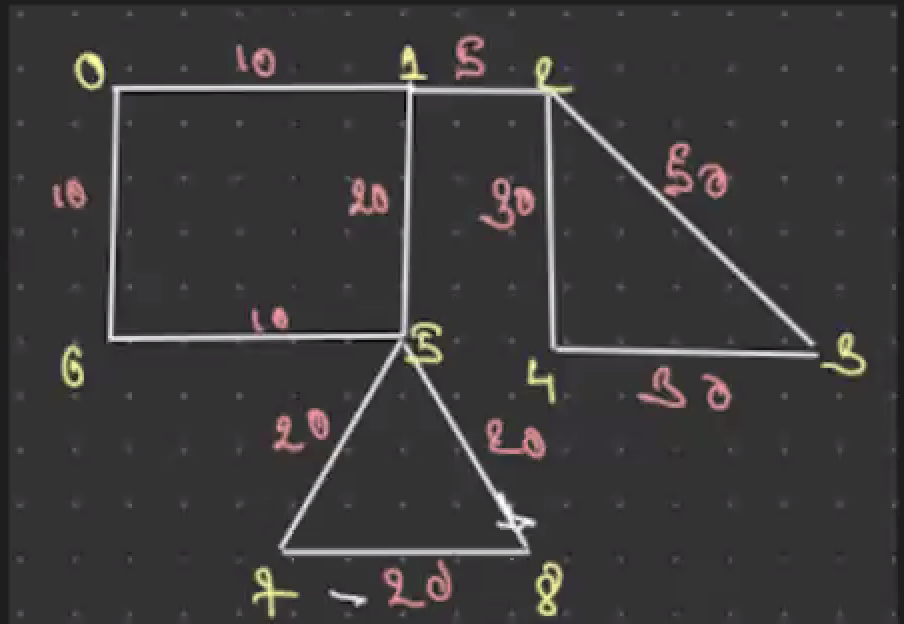 0 10 1 5 2
10 20 30 50
10
6 5 4 3
30
20 20
7 - 20 8